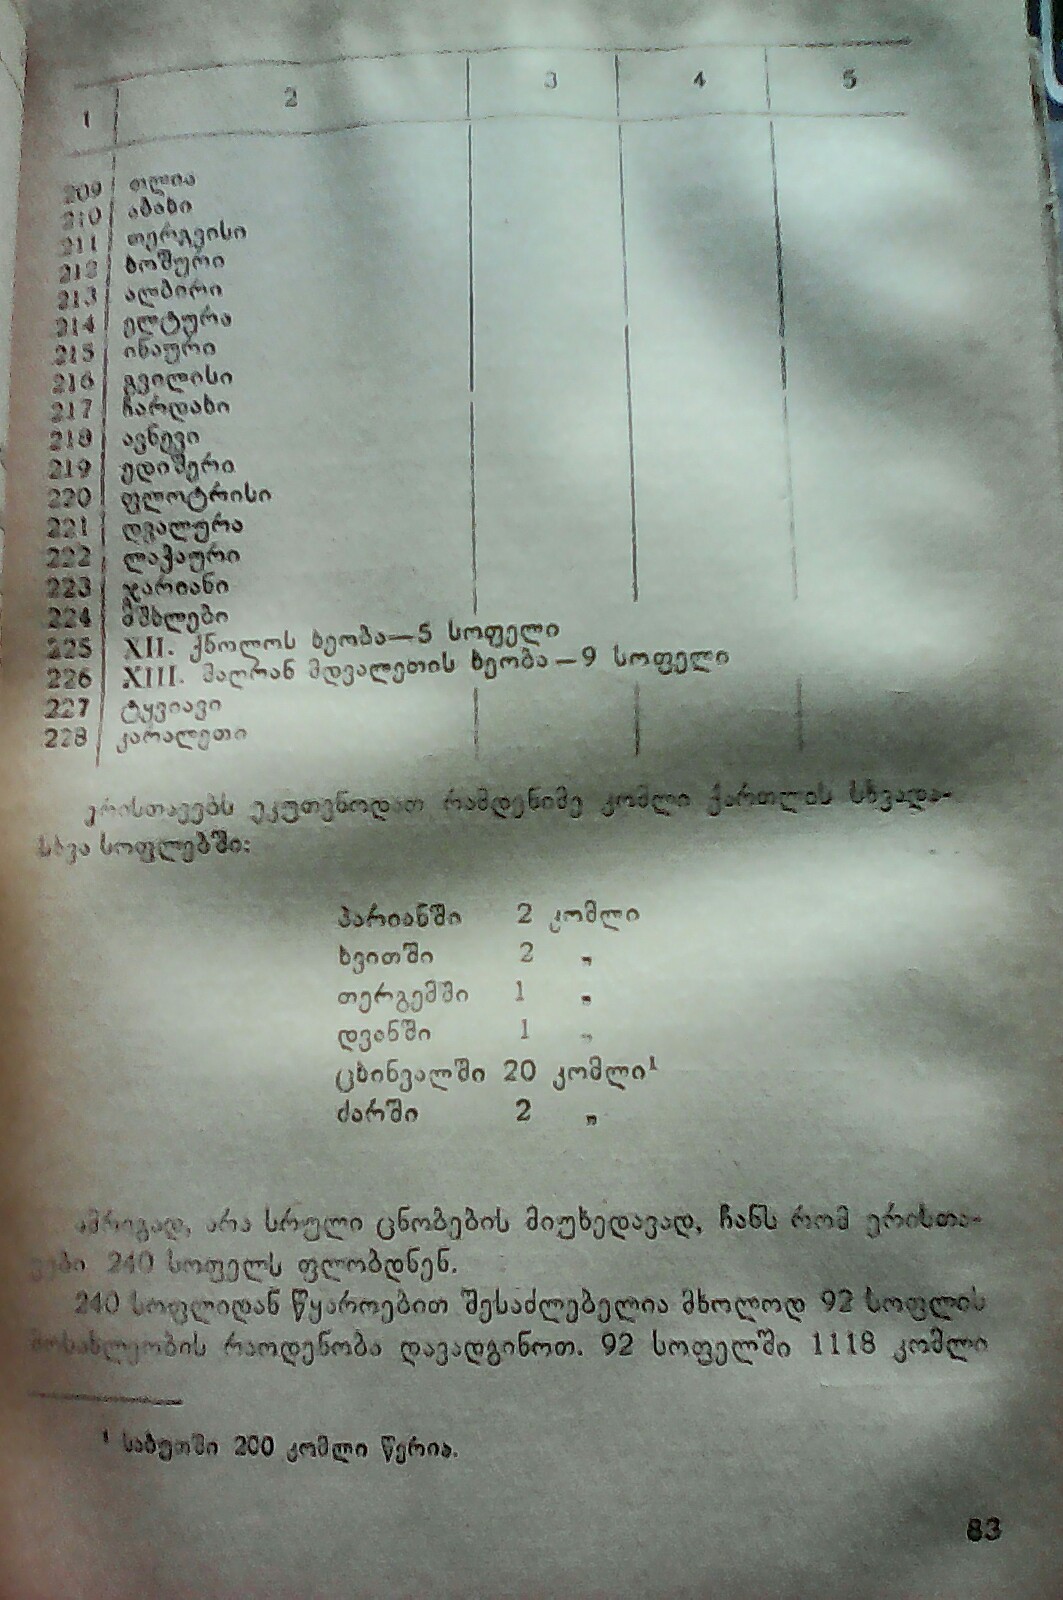 1 2 3 4 5
209 თლია
210 აბახი
211 თერგვისი
212 ხოშური
213 ალბირი
214 ელტურა
215 ინაური
216 გვილისი
217 ჩარდახი
218 ავნევი
219 ედიშერი
220 ფლოტრისი
221 დვალურა
222 ლაჭაური
223 ჯარიანი
224 მშხლები
225 XII. ქნოლოს ხეობა—5 სოფელი
226 XIII. მაღრან მდვალეთის ხეობა—9 სოფელი
227 ტყვიავი
228 კარალეთი
ერისთავებს ეკუთვნოდათ რამდენიმე კომლი ქართლის სხვადა-
სხვა სოფლებში:
პარიანში 2 კომლი
ხვითში 2 „
თერგემში 1 „
დვანში 1 „
ცხინვალში 20 კომლი¹
ძარში 2 „
ამრიგად, არა სრული ცნობების მიუხედავად, ჩანს რომ ერისთა-
ვები 240 სოფელს ფლობდნენ.
240 სოფლიდან წყაროებით შესაძლებელია მხოლოდ 92 სოფლის
მოსახლეობის რაოდენობა დავადგინოთ. 92 სოფელში 1118 კომლი
¹ საბუთში 200 კომლი წერია.
83